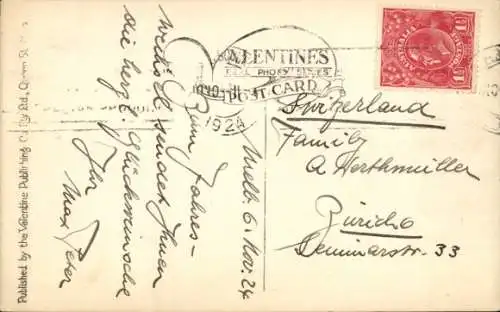 VALENTINES
REAL PHOTO SERIES
POST CARD
1924
AUSTRALIA
Melb. 6. Nov. 24
Zum Jahres-
wechsel sendet Ihnen
die herzl. Glückwünsche
Ihr
Max Peter
Switzerland
Family
A Werthmüller
Zürich
Seminarstr. 33
Published by the Valentine Publishing Co. Pty Ltd., Queen St.